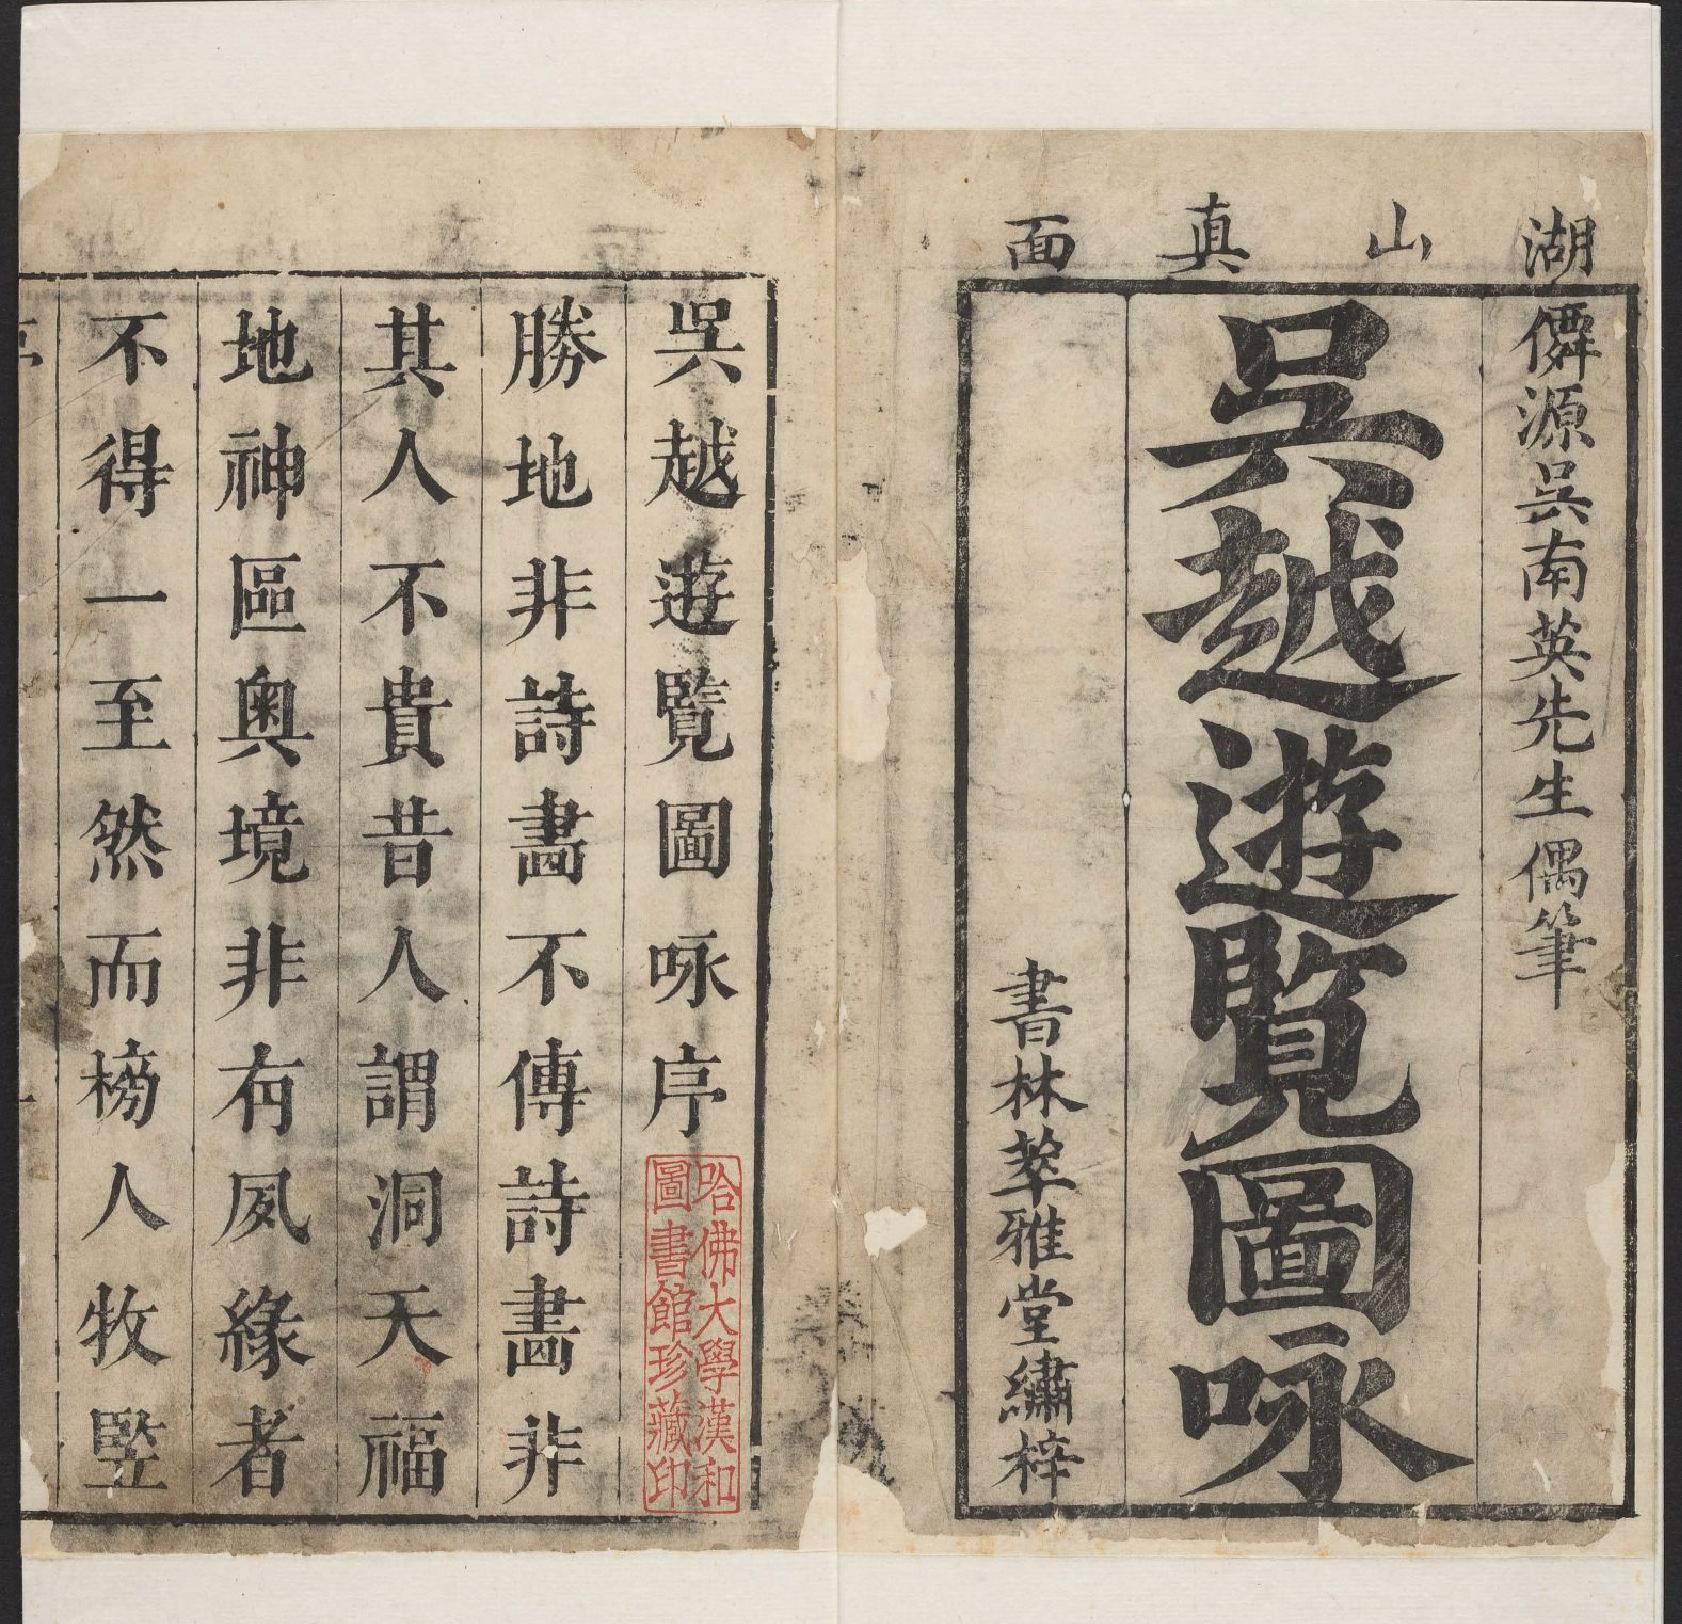 湖山真面
僊源吳南英先生偶筆
吳越遊覽圖咏
書林萃雅堂繡梓
吳越遊覽圖咏序
勝地非詩畵不傳詩畵非
其人不貴昔人謂洞天福
地神區奥境非有夙緣者
不得一至然而榜人牧豎
哈佛大學漢和
圖書館珍藏印